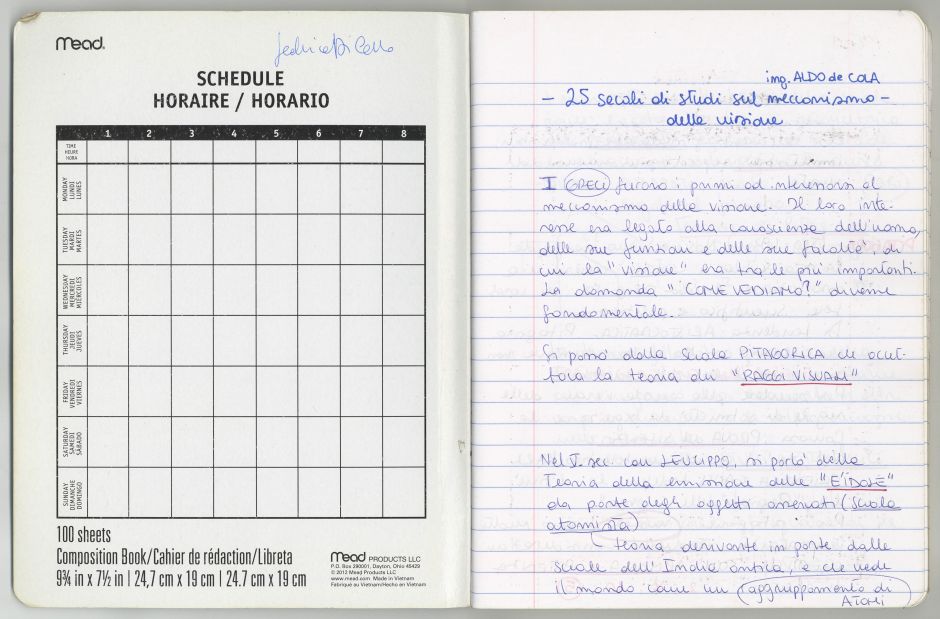 Mead
SCHEDULE
HORAIRE / HORARIO
1 2 3 4 5 6 7 8
TIME
HEURE
HORA
MONDAY
LUNDI
LUNES
TUESDAY
MARDI
MARTES
WEDNESDAY
MERCREDI
MIÉRCOLES
THURSDAY
JEUDI
JUEVES
FRIDAY
VENDREDI
VIERNES
SATURDAY
SAMEDI
SÁBADO
SUNDAY
DIMANCHE
DOMINGO
100 sheets
Composition Book/Cahier de rédaction/Libreta
9¾ in x 7½ in | 24,7 cm x 19 cm | 24.7 cm x 19 cm
Mead PRODUCTS LLC
P.O. Box 290001, Dayton, Ohio 45429
© 2012 Mead Products LLC
www.mead.com Made in Vietnam
Fabriqué au Vietnam/Hecho en Vietnam
ing. ALDO de COLA
- 25 secoli di studi sul meccanismo -
della visione
I GRECI furono i primi ad interessarsi al
meccanismo della visione. Il loro inte-
resse era legato alla conoscienza dell'uomo,
delle sue funzioni e delle sue facoltà, di
cui la "visione" era tra le più importanti.
La domanda "COME VEDIAMO?" divenne
fondamentale.
Si passò dalla scuola PITAGORICA che
la teoria dei "RAGGI VISUALI"
Nel V sec. con LEUCIPPO, si parlò della
Teoria della emissione delle "EÌDOLE"
da parte degli oggetti osservati (scuola
atomista)
teoria derivante in parte dalle
scuole dell'India antica, e che vede
il mondo come un raggruppamento di
ATOMI